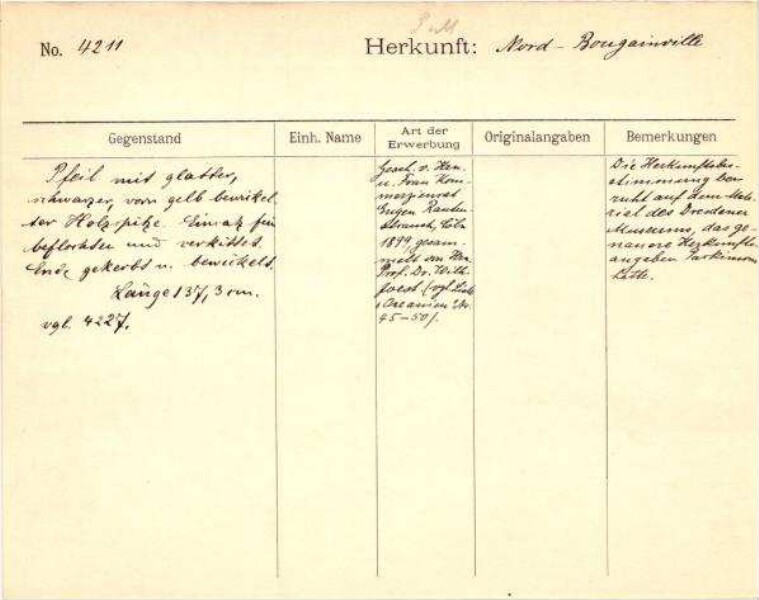 No. 4211
Herkunft: Nord - Bougainville
Gegenstand
Einh. Name
Art der
Erwerbung
Originalangaben
Bemerkungen
Pfeil mit glatter,
schwarzer, vorn gelb bewickel-
ter Holzspitze. Einsatz fein
beflochten und verkittet.
Ende gekerbt u. bewickelt.
Länge 137,3 cm.
vgl. 4227.
Gesch. v. Hrn.
u. Frau Kom-
merzienrat
Eugen Rauten-
strauch, Cöln
1899, gesam-
melt von Hrn.
Prof. Dr. Wilh.
Joest (vgl. Liste
Oceanien Nr.
45-50).
Die Herkunftsbe-
stimmung be-
ruht auf dem Mate-
rial des Dresdener
Museums, das ge-
nauere Herkunfts-
angaben Parkinsons